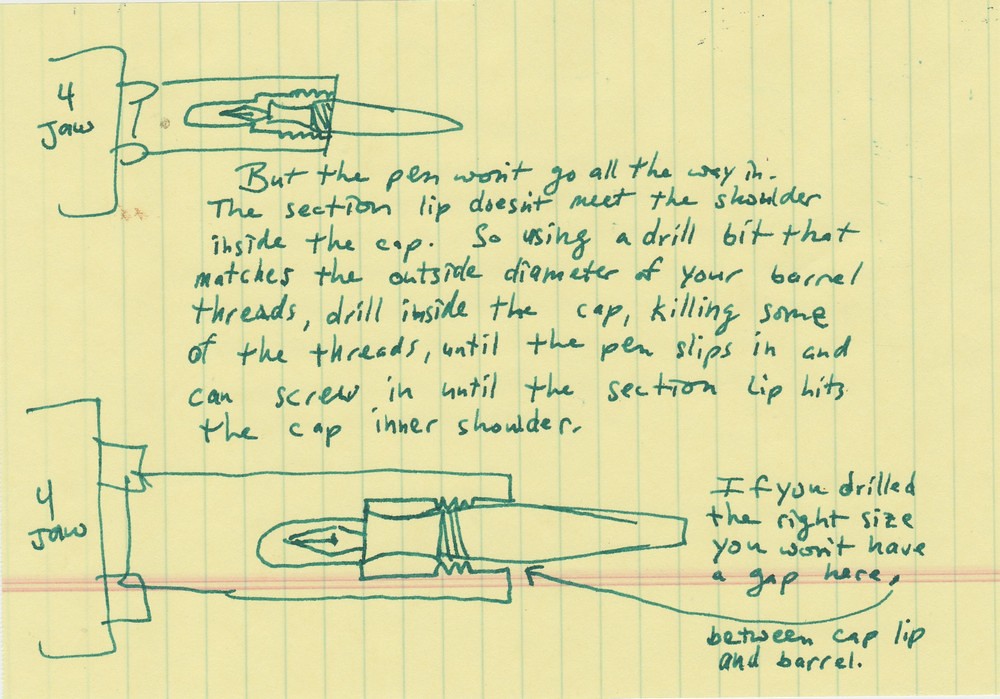 4
Jaw
But the pen won't go all the way in.
The section lip doesn't meet the shoulder
inside the cap. So using a drill bit that
matches the outside diameter of your barrel
threads, drill inside the cap, killing some
of the threads, until the pen slips in and
can screw in until the section lip hits
the cap inner shoulder.
4
Jaw
If you drilled
the right size
you won't have
a gap here,
between cap lip
and barrel.